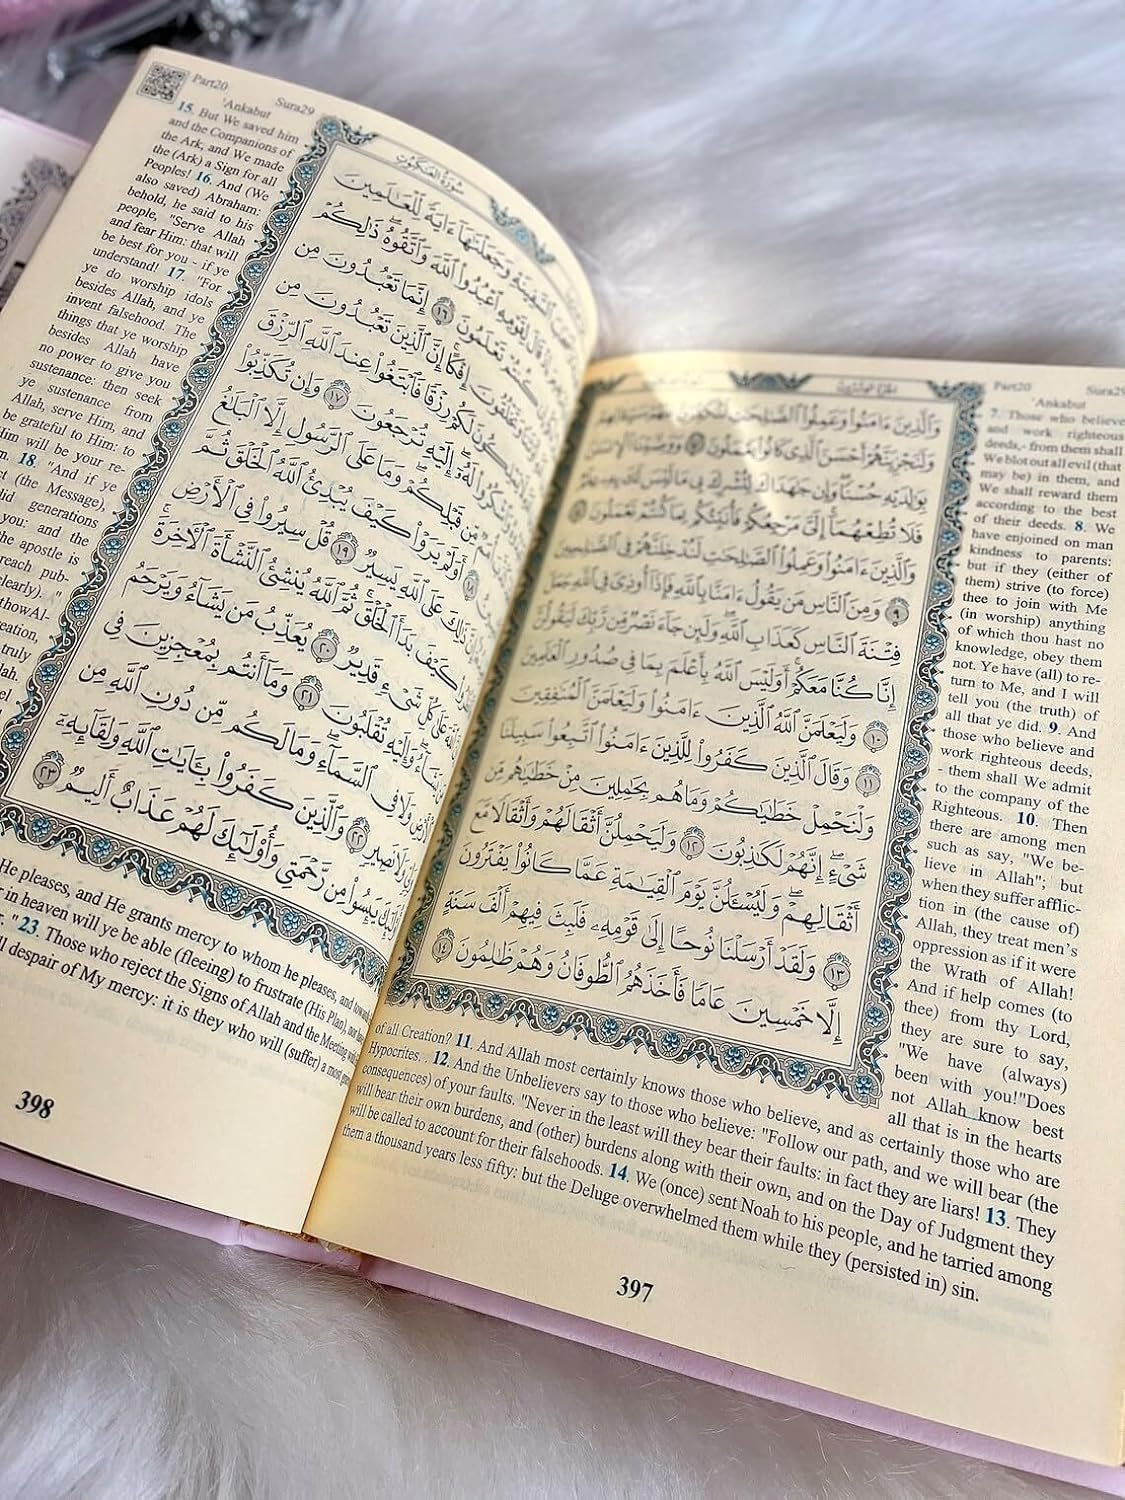 Part20 Sura29
'Ankabut
7. Those who believe
and work righteous
deeds,- from them shall
We blot out all evil (that
may be) in them, and
We shall reward them
according to the best
of their deeds. 8. We
have enjoined on man
kindness to parents:
but if they (either of
them) strive (to force)
thee to join with Me
(in worship) anything
of which thou hast no
knowledge, obey them
not. Ye have (all) to re-
turn to Me, and I will
tell you (the truth) of
all that ye did. 9. And
those who believe and
work righteous deeds,
- them shall We admit
to the company of the
Righteous. 10. Then
there are among men
such as say, "We be-
lieve in Allah"; but
when they suffer afflic-
tion in (the cause of)
Allah, they treat men's
oppression as if it were
the Wrath of Allah!
And if help comes (to
thee) from thy Lord,
they are sure to say,
"We have (always)
been with you!"Does
not Allah know best
all that is in the hearts
of all Creation? 11. And Allah most certainly knows those who believe, and as certainly those who are
Hypocrites. . 12. And the Unbelievers say to those who believe: "Follow our path, and we will bear (the
consequences) of your faults. "Never in the least will they bear their faults: in fact they are liars! 13. They
will bear their own burdens, and (other) burdens along with their own, and on the Day of Judgment they
will be called to account for their falsehoods. 14. We (once) sent Noah to his people, and he tarried among
them a thousand years less fifty: but the Deluge overwhelmed them while they (persisted in) sin.
وَالَّذِينَ ءَامَنُوا۟ وَعَمِلُوا۟ الصَّٰلِحَٰتِ
وَلَنَجْزِيَنَّهُمْ أَحْسَنَ الَّذِى كَانُوا۟ يَعْمَلُونَ ۝٧ وَوَصَّيْنَا الْإِنسَٰنَ
بِوَٰلِدَيْهِ حُسْنًا وَإِن جَٰهَدَاكَ لِتُشْرِكَ بِى مَا لَيْسَ لَكَ بِهِۦ
فَلَا تُطِعْهُمَآ إِلَىَّ مَرْجِعُكُمْ فَأُنَبِّئُكُم بِمَا كُنتُمْ تَعْمَلُونَ ۝٨
وَالَّذِينَ ءَامَنُوا۟ وَعَمِلُوا۟ الصَّٰلِحَٰتِ لَنُدْخِلَنَّهُمْ فِى الصَّٰلِحِينَ
۝٩ وَمِنَ النَّاسِ مَن يَقُولُ ءَامَنَّا بِاللَّهِ فَإِذَآ أُوذِىَ فِى اللَّهِ جَعَلَ
فِتْنَةَ النَّاسِ كَعَذَابِ اللَّهِ وَلَئِن جَآءَ نَصْرٌ مِّن رَّبِّكَ لَيَقُولُنَّ
إِنَّا كُنَّا مَعَكُمْ أَوَلَيْسَ اللَّهُ بِأَعْلَمَ بِمَا فِى صُدُورِ الْعَٰلَمِينَ
۝١٠ وَلَيَعْلَمَنَّ اللَّهُ الَّذِينَ ءَامَنُوا۟ وَلَيَعْلَمَنَّ الْمُنَٰفِقِينَ
۝١١ وَقَالَ الَّذِينَ كَفَرُوا۟ لِلَّذِينَ ءَامَنُوا۟ اتَّبِعُوا۟ سَبِيلَنَا
وَلْنَحْمِلْ خَطَٰيَٰكُمْ وَمَا هُم بِحَٰمِلِينَ مِنْ خَطَٰيَٰهُم مِّن
شَىْءٍ إِنَّهُمْ لَكَٰذِبُونَ ۝١٢ وَلَيَحْمِلُنَّ أَثْقَالَهُمْ وَأَثْقَالًا مَّعَ
أَثْقَالِهِمْ وَلَيُسْـَٔلُنَّ يَوْمَ الْقِيَٰمَةِ عَمَّا كَانُوا۟ يَفْتَرُونَ
۝١٣ وَلَقَدْ أَرْسَلْنَا نُوحًا إِلَىٰ قَوْمِهِۦ فَلَبِثَ فِيهِمْ أَلْفَ سَنَةٍ
إِلَّا خَمْسِينَ عَامًا فَأَخَذَهُمُ الطُّوفَانُ وَهُمْ ظَٰلِمُونَ ۝١٤
397
Part20 Sura29
'Ankabut
15. But We saved him
and the Companions of
the Ark, and We made
the (Ark) a Sign for all
Peoples! 16. And (We
also saved) Abraham:
behold, he said to his
people, "Serve Allah
and fear Him: that will
be best for you - if ye
understand! 17. "For
ye do worship idols
besides Allah, and ye
invent falsehood. The
things that ye worship
besides Allah have
no power to give you
sustenance: then seek
ye sustenance from
Allah, serve Him, and
be grateful to Him: to
Him will be your re-
18. "And if ye
(the Message),
generations
you: and the
apostle is
pub-
"
Al-
truly
He pleases, and He grants mercy to whom he pleases, and
in heaven will ye be able (fleeing) to frustrate (His Plan), nor
" 23. Those who reject the Signs of Allah and the Meeting
despair of My mercy: it is they who will (suffer) a most
سُورَةُ العَنكَبُوت
السَّفِينَةِ وَجَعَلْنَٰهَآ ءَايَةً لِّلْعَٰلَمِينَ
قَالَ لِقَوْمِهِ اعْبُدُوا۟ اللَّهَ وَاتَّقُوهُ ذَٰلِكُمْ
كُنتُمْ تَعْلَمُونَ ۝١٦ إِنَّمَا تَعْبُدُونَ مِن
وَتَخْلُقُونَ إِفْكًا إِنَّ الَّذِينَ تَعْبُدُونَ مِن
لَكُمْ رِزْقًا فَابْتَغُوا۟ عِندَ اللَّهِ الرِّزْقَ
وَاشْكُرُوا۟ لَهُۥٓ إِلَيْهِ تُرْجَعُونَ ۝١٧ وَإِن تُكَذِّبُوا۟
مِّن قَبْلِكُمْ وَمَا عَلَى الرَّسُولِ إِلَّا الْبَلَٰغُ
۝١٨ أَوَلَمْ يَرَوْا۟ كَيْفَ يُبْدِئُ اللَّهُ الْخَلْقَ ثُمَّ
ذَٰلِكَ عَلَى اللَّهِ يَسِيرٌ ۝١٩ قُلْ سِيرُوا۟ فِى الْأَرْضِ
كَيْفَ بَدَأَ الْخَلْقَ ثُمَّ اللَّهُ يُنشِئُ النَّشْأَةَ الْءَاخِرَةَ
عَلَىٰ كُلِّ شَىْءٍ قَدِيرٌ ۝٢٠ يُعَذِّبُ مَن يَشَآءُ وَيَرْحَمُ
وَإِلَيْهِ تُقْلَبُونَ ۝٢١ وَمَآ أَنتُم بِمُعْجِزِينَ فِى
وَلَا فِى السَّمَآءِ وَمَا لَكُم مِّن دُونِ اللَّهِ مِن
وَلَا نَصِيرٍ ۝٢٢ وَالَّذِينَ كَفَرُوا۟ بِـَٔايَٰتِ اللَّهِ وَلِقَآئِهِۦٓ
يَئِسُوا۟ مِن رَّحْمَتِى وَأُو۟لَٰٓئِكَ لَهُمْ عَذَابٌ أَلِيمٌ ۝٢٣
398